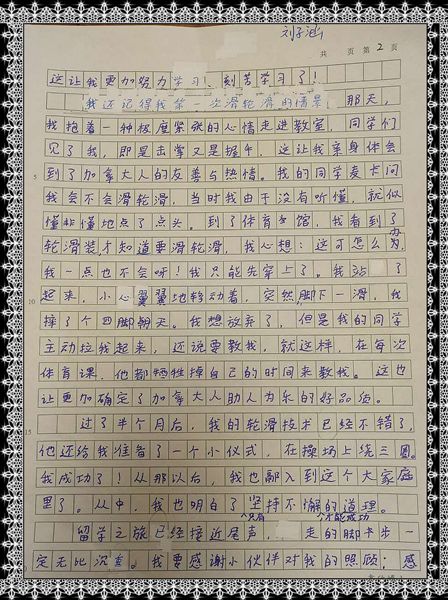 刘子涵
共 页 第 2 页
这让我更加努力学习！刻苦学习了！
我还记得我第一次滑轮滑的情景。那天，
我抱着一种极度紧张的心情走进教室，同学们
见了我，即是击掌又是握手，这让我亲身体会
到了加拿大人的友善与热情。我的同学麦卡问
我会不会滑轮滑，当时我由于没有听懂，就似
懂非懂地点了点头。到了体育馆，我看到了
轮滑装，才知道要滑轮滑，我心想：这可怎么办
我一点也不会呀！我只能先穿上了。我站了
起来，小心翼翼地移动着，突然，脚下一滑，我
摔了个四脚朝天。我想放弃了，但是我的同学
主动拉我起来，还说要教我，就这样，在每次
体育课，他都牺牲掉自己的时间来教我。这也
让更加确定了加拿大人助人为乐的好品质。
过了半个月后，我的轮滑技术已经不错了，
他还给我准备了一个小仪式，在操场上绕三圆。
我成功了！从那以后，我也融入到这个大家庭
里了。从中，我也明白了坚持不懈的道理。
只有 才能成功
留学之旅已经接近尾声，走的脚步一
定无比沉重。我要感谢小伙伴对我的照顾；感
5
10
15